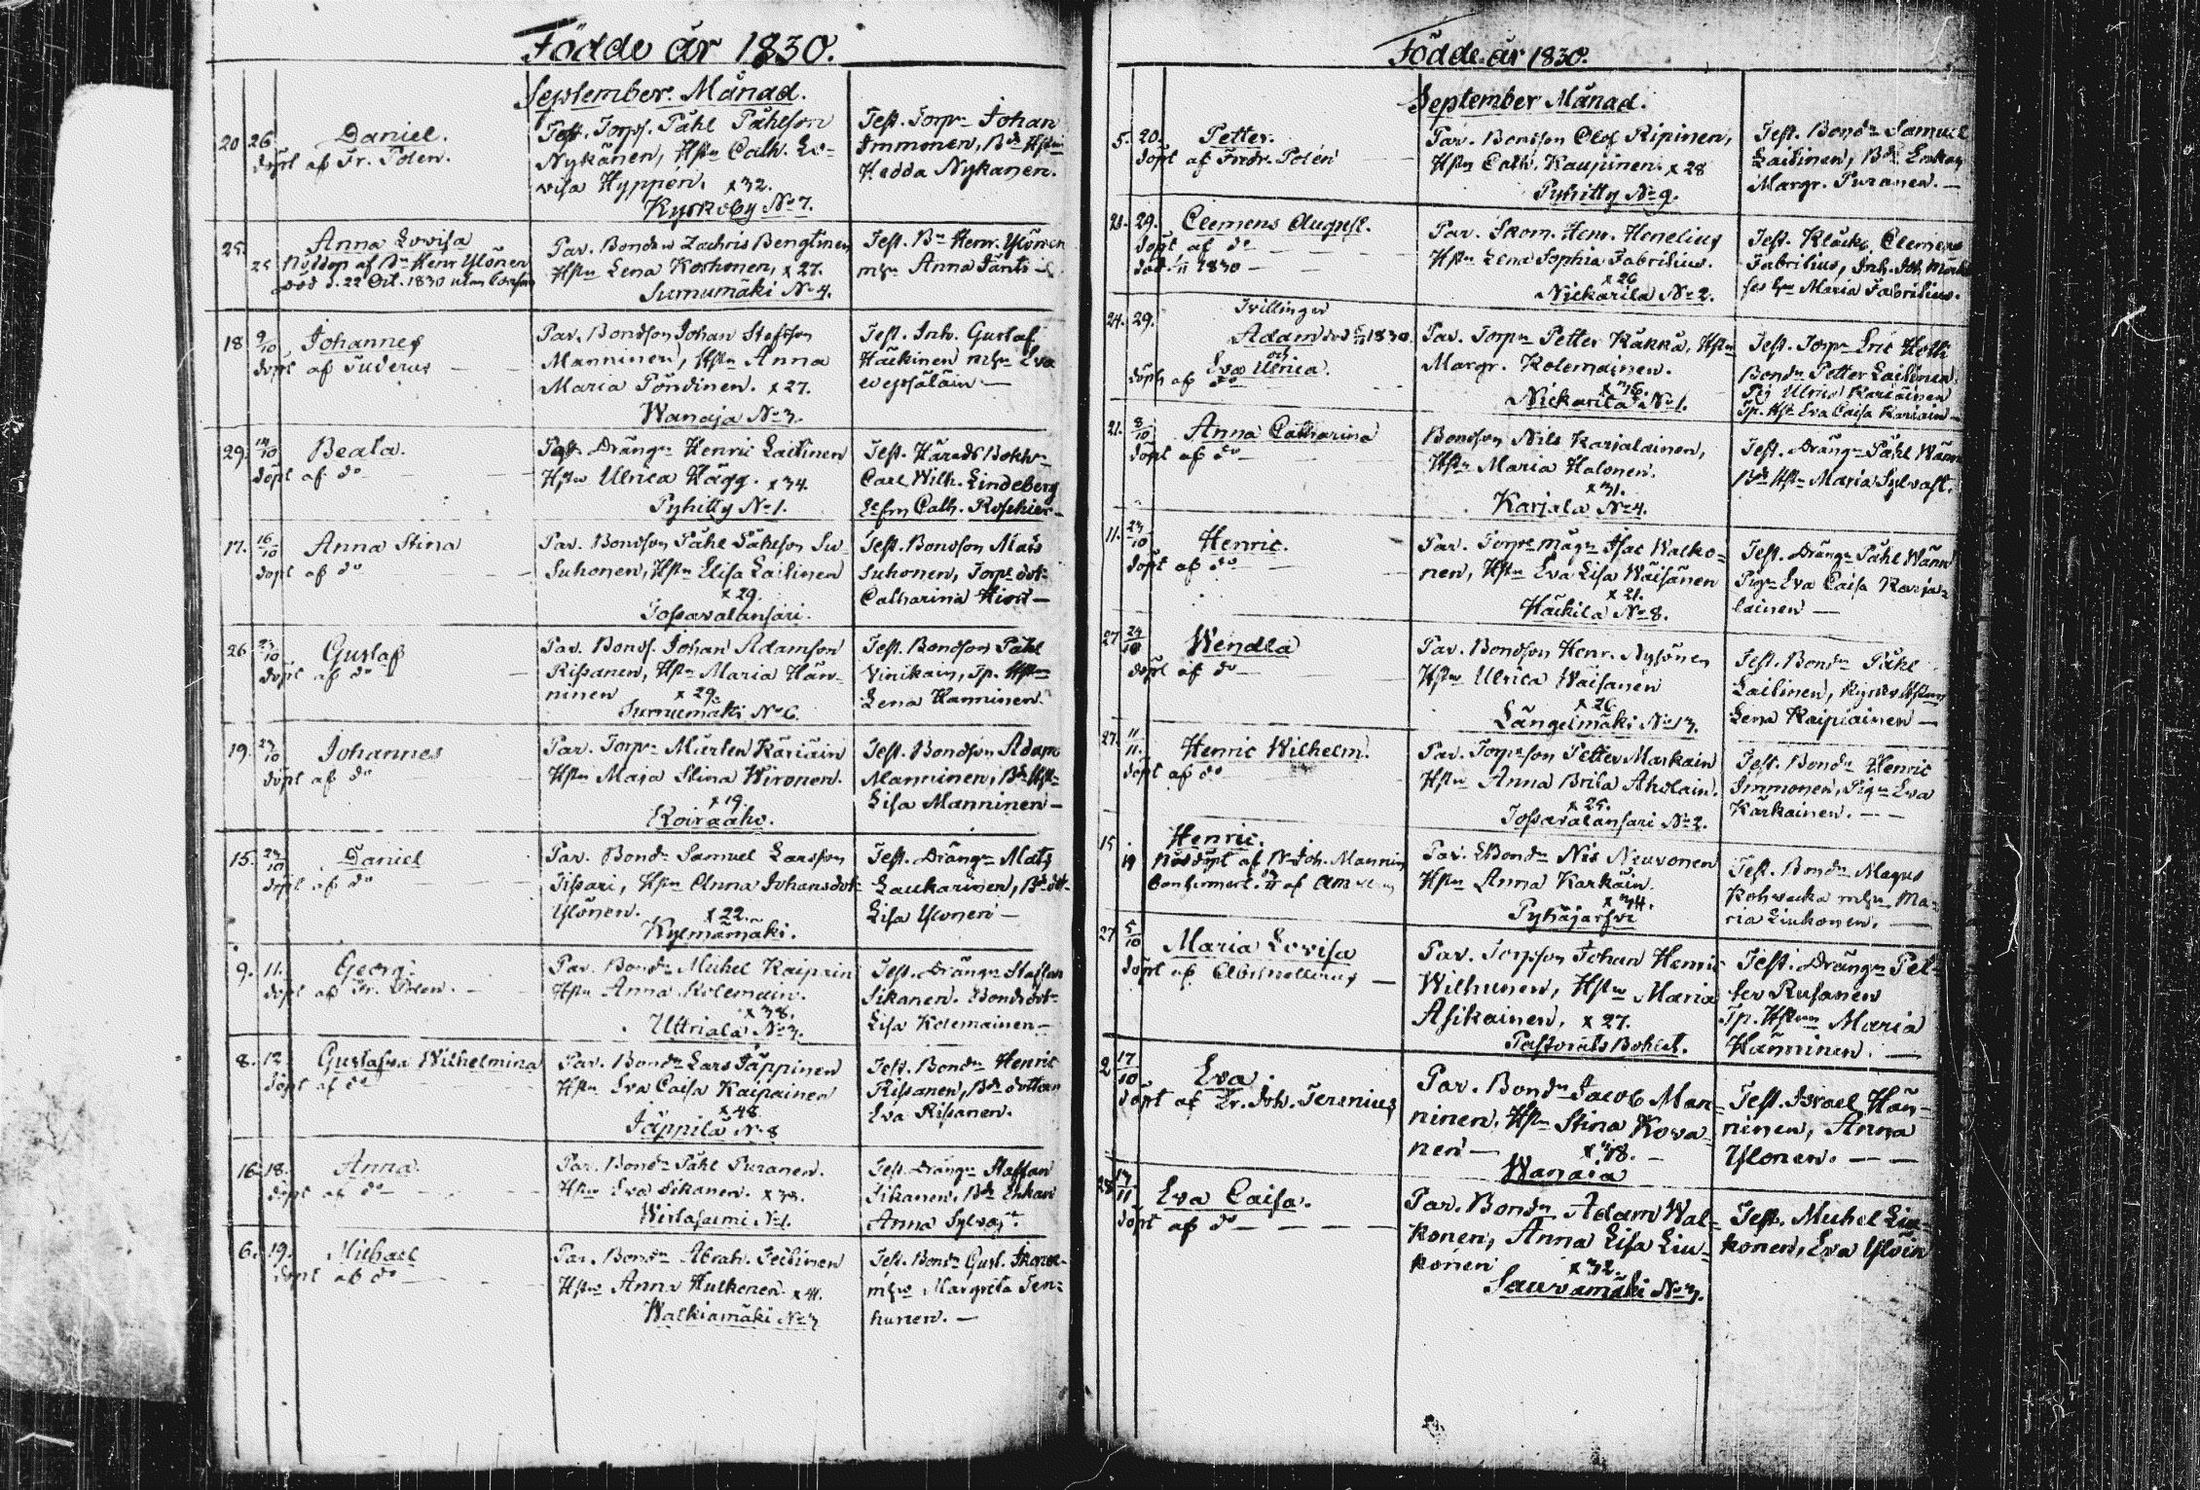 Födde år 1830.
September Månad.
20 26 Daniel.
döpt af Fr. Polén.
Torps. Påhl Påhlson
Nykänen, Hstn Cath. Lo-
visa Hyppön. x 32.
Kyrkoby No 7.
Test. Torpn Johan
Immonen, Bd. Hstn
Hedda Nykänen.
25. 25 Anna Lovisa
Nöddop af Bn Henr Ylönen
död d. 22 Oct. 1830 utan
Par. Bonden Zachris Bengtinen
Hstn Lena Korhonen, x 27.
Surnumäki No 4.
Test. Bn Henr. Ylönen
mhu Anna Jäntti
18 9/10 Johannes
döpt af Tuderus
Par. Bondson Johan Staffson
Manninen, Hstn Anna
Maria Pöndinen. x 27.
Wanaja No 3.
Test. Inh. Gustaf
Häckinen mhu Eva
Wepsäläin —
29. 14/10 Beata.
döpt af do
Drängn Henric Laitinen
Hstn Ulrica Hägg. x 34.
Pyhitty No 1.
Test. Härads Bokhn
Carl Wilh. Lindeberg
Cath. Roschier —
17. 16/10 Anna Stina
döpt af do
Par. Bondson Påhl Påhlson Su-
Suhonen, Hstn Elisa Laitinen
x 29.
Josavalansari.
Test. Bondson Mats
Suhonen, Torps dot.
Catharina —
26 23/10 Gustaf
döpt af do
Par. Bonds. Johan Adamson
Rissanen, Hstn Maria Hän-
ninen x 29.
Surnumäki No 6.
Test. Bondson Påhl
Vinikain, Tp. Hstn
Lena Hanninen.
19. 23/10 Johannes
döpt af do
Par. Torpn Mårten Käriäin
Hstn Maja Stina Wironen.
x 19.
Koiraaho.
Test. Bondson Adam
Manninen, Bd. Hstn
Lisa Manninen —
15. 23/10 Daniel
döpt af do
Par. Bondn Samuel Larsson
Tissari, Hstn Anna Johansdot.
Ylönen. x 22.
Kylmämäki.
Test. Drängn Mats
Laukarinen, Bd. dot.
Lisa Ylonen —
9. 11. Georg.
döpt af Fr. Polen.
Par. Bondn Michel Kaipain
Hstn Anna Kolemain.
x 38.
Uttriala No 3.
Test. Drängn Staffan
Sikanen. Bondsdot.
Lisa Kolemainen —
8. 12 Gustafva Wilhelmina
döpt af do
Par. Bondn Lars Jäppinen
Hstn Eva Caisa Kaipainen
x 48.
Jäppilä No 8
Test. Bondn Henric
Rissanen, Bd. dottren
Eva Rissanen.
16. 18. Anna.
döpt af do
Par. Bondn Påhl Puranen.
Hstn Eva Sikanen.
Wirtasalmi No 1.
Test. Drängn Staffan
Sikanen, Bd. Enkan
Anna Sylvast.
6. 19. Michael
döpt af do
Par. Bondn Abrah.
Hstn Anna Hulkonen. x 41.
Walkiamäki No 3
Test. Bondn Gust.
mhu, Margreta Ten-
hunen. —
Födde år 1830.
September Månad.
5. 20. Petter.
döpt af Fredr. Polén
Par. Bondson Olof Ripinen,
Hstn Cath. Kaupinen. x 28
Pyhitty No 9.
Test. Bondn Samuel
Laitinen, Bd. Enkan
Margr. Puranen. —
21. 29. Clemens August.
döpt af do
1830
Par. Skom. Henr. Henelius
Hstn Lena Sophia Fabritius.
x 26
Nickarila No 2.
Test. Klock. Clemens
Fabritius, Inh. Joh.
Maria Fabritius.
24. 29. Tvillingar
Adam död 1830
och
Eva Ulrica.
döpt af do
Par. Torpn Petter Kakka, Hstn
Margr. Kolemainen.
Nickarila No 1.
Test. Torpn Eric Hotti
Bondn Petter Laitinen.
Pig. Ulrica Kariainen
Tp. Hst. Eva Caisa Kariain
21. 8/10 Anna Catharina
döpt af do
Bondson Nils Karjalainen,
Hstn Maria Halonen.
x 31.
Karjala No 4.
Test. Drängn Påhl Wänn
Bd. Hstn Maria Sylvast.
11. 23/10 Henric.
döpt af do
Par. Torpn mågn Isac Walko-
nen, Hstn Eva Lisa Wäisänen
x 21.
Häckilä No 8.
Test. Drängn Påhl Wänn
Pign Eva Caisa Karja-
lainen —
27 24/10 Wendla
döpt af do
Par. Bondson Henr. Nysönen
Hstn Ulrica Wäisanen
x 26
Längelmäki No 13.
Test. Bondn Påhl
Laitinen,
Lena Kaipiainen —
27. 11/11. Henric Wilhelm.
döpt af do
Par. Torpn son Petter Markain
Hstn Anna Brita Aholain.
x 25.
Josavalansari No 2.
Test. Bondn Henric
Immonen, Pign Eva
Kärkainen. —
15 19 Henric.
Nöddöpt af Bn Joh. Mannin
Par. Bondn Nils Neuvonen
Hstn Anna Karkäin.
x 34.
Pyhäjarfvi
Test. Bondn Magus
Kohvacka mhu Ma-
ria Liukonen. —
27 5/10 Maria Lovisa
döpt af
Par. Torpson Johan Henric
Wilhunen, Hstn Maria
Asikainen, x 27.
Pastorats Bohlet.
Test. Drängn Pet-
ter Rusanen
Tp. Hstrun Maria
Hänninen. —
2 17/10 Eva.
döpt af Fr. Joh. Terenius
Par. Bondn Jacob Man-
ninen, Hstn Stina Kova-
nen — x 38. —
Wanaja
Test. Israel Hän-
ninen, Anna
Ylonen. — —
28 13/11 Eva Caisa.
döpt af do
Par. Bondn Adam Wal-
konen, Anna Lisa Liu-
konen x 32.
Sauvamäki No 3.
Test. Michel Liu-
konen, Eva Ylöin